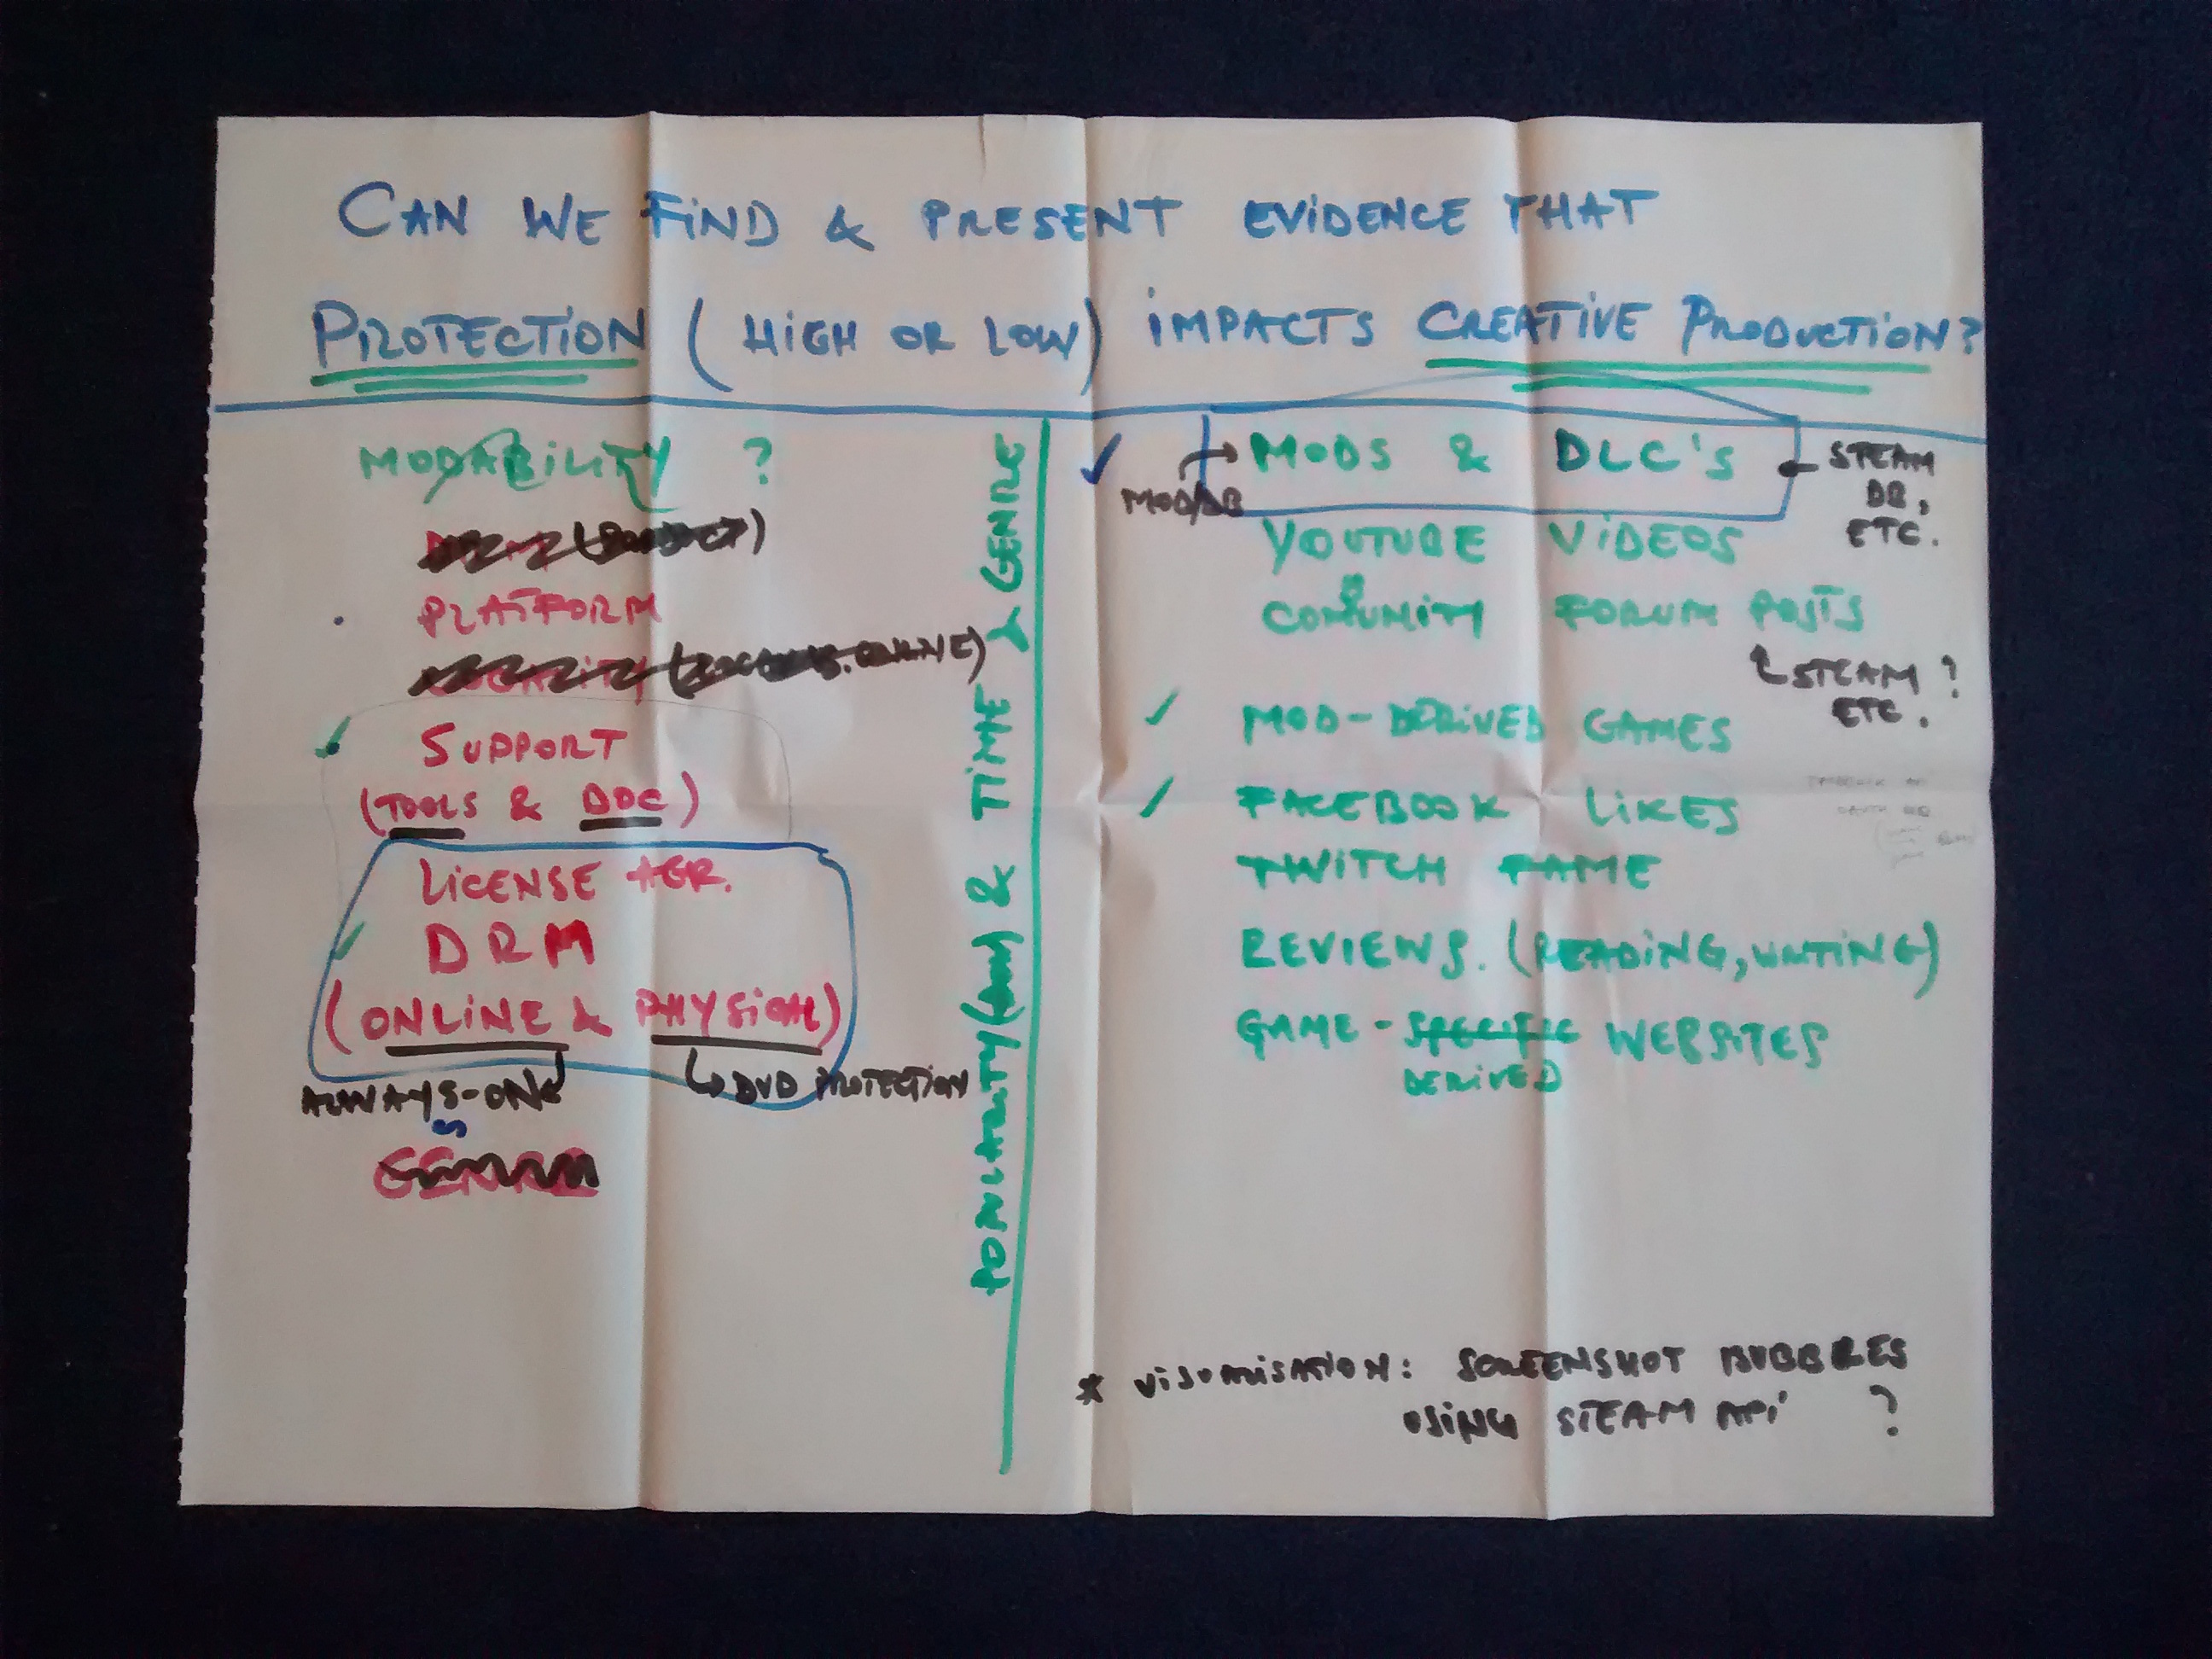 CAN WE FIND & PRESENT EVIDENCE THAT
PROTECTION (HIGH OR LOW) IMPACTS CREATIVE PRODUCTION?
MODABILITY ?
PLATFORM
SUPPORT
(TOOLS & DOC)
LICENSE AGR.
DRM
(ONLINE & PHYSICAL)
ALWAYS-ON
DVD PROTECTION
GENRE
POPULARITY & TIME & GENRE
MODS & DLC'S
MOD/DB
STEAM
DB,
ETC.
YOUTUBE VIDEOS
COMUNITY FORUM POSTS
STEAM ?
ETC.
MOD-DERIVED GAMES
FACEBOOK LIKES
TWITCH FAME
REVIEWS. (READING, WRITING)
GAME-SPECIFIC WEBSITES
DERIVED
* VISUALISATION: SCREENSHOT BUBBLES
USING STEAM API ?